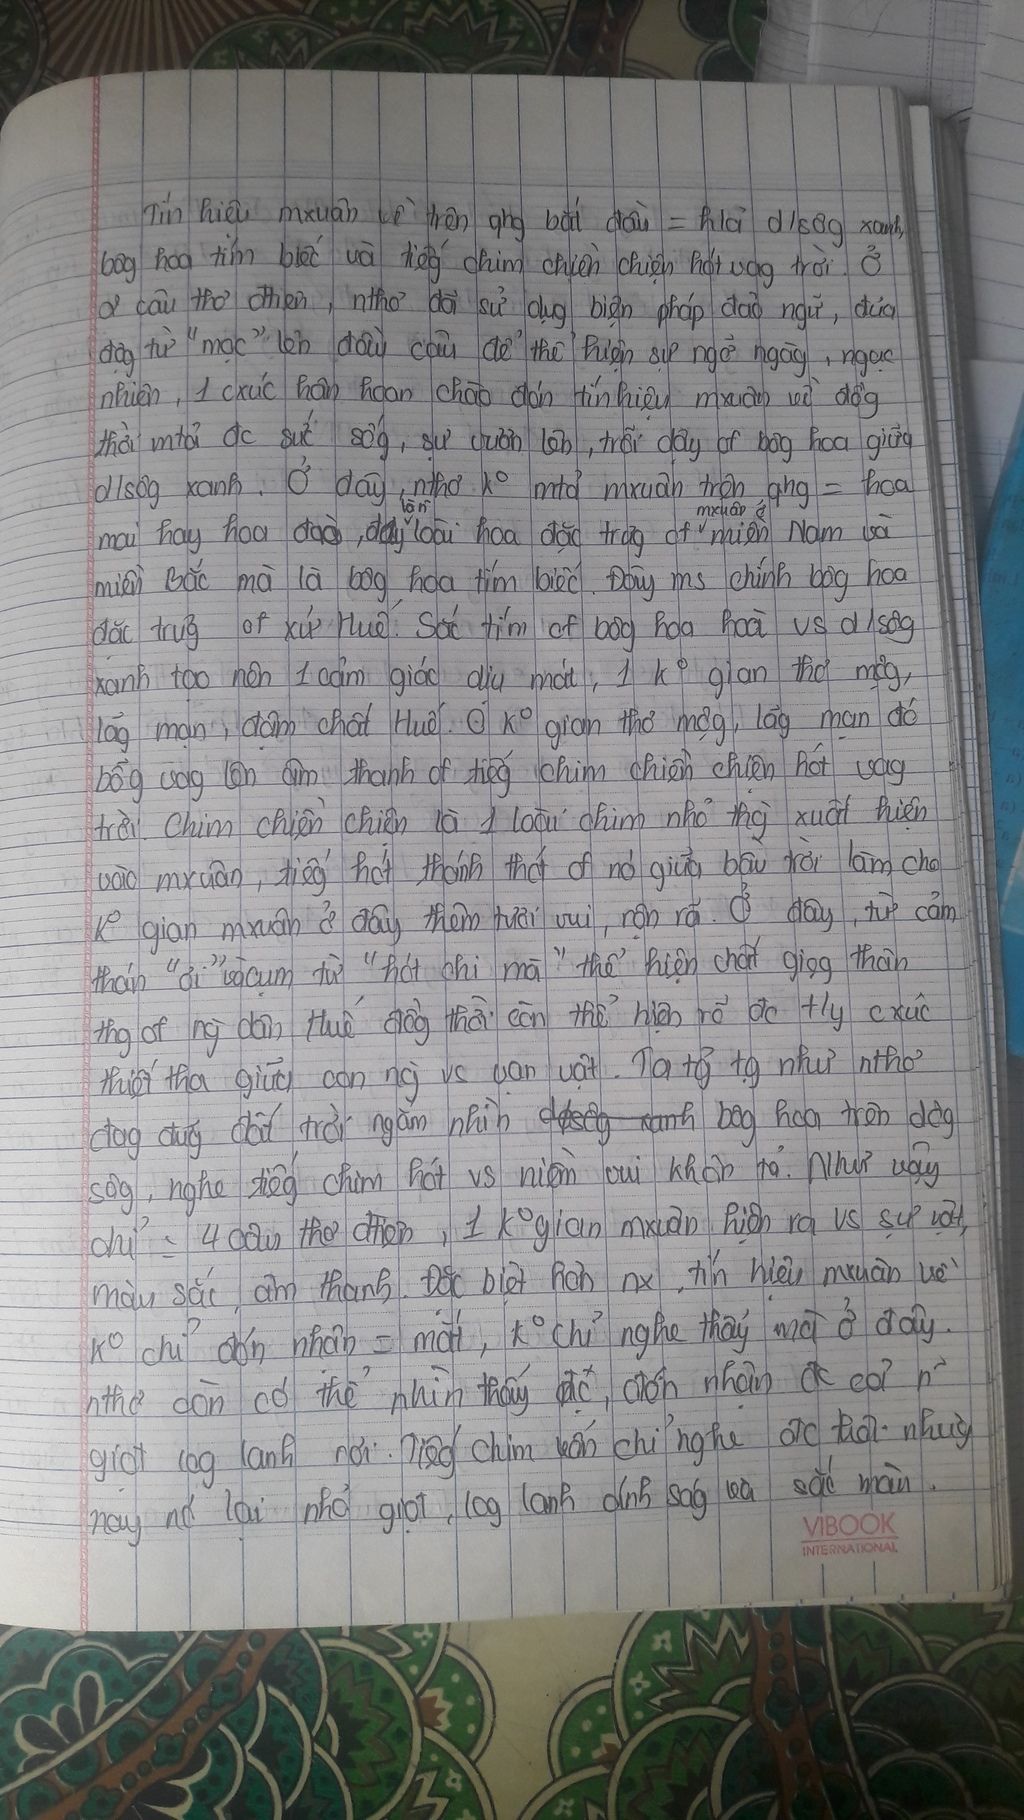 Tín hiệu mxuân về trên qhg bắt đầu = h/ả d/sôg xanh,
bôg hoa tím biếc và tiếg chim chiền chiện hót vag trời. Ở
2 câu thơ đtiên, nthơ đã sử dụg biện pháp đảo ngữ, đưa
độg từ "mọc" lên đầu câu để thể hiện sự ngỡ ngàg, ngạc
nhiên, 1 cxúc hân hoan chào đón tín hiệu mxuân về đồg
thời mtả đc sức sốg, sự vươn lên, trỗi dậy of bôg hoa giữa
d/sôg xanh. Ở đây, nthơ k° mtả mxuân trên qhg = hoa
mai hay hoa đào, lòn đây loài hoa đặc trưg of mxuân ở miền Nam và
miền Bắc mà là bôg hoa tím biếc. Đây ms chính bôg hoa
đặc trưg of xứ Huế. Sắc tím of bôg hoa hoà vs d/sôg
xanh tạo nên 1 cảm giác dịu mát, 1 k° gian thơ mộg,
lãg mạn, đậm chất Huế. Ở k° gian thơ mộg, lãg mạn đó
bỗg vag lên âm thanh of tiếg chim chiền chiện hót vag
trời. Chim chiền chiện là 1 loài chim nhỏ thg xuất hiện
vào mxuân, tiếg hót thánh thót of nó giữa bầu trời làm cho
k° gian mxuân ở đây thêm tươi vui, rộn rã. Ở đây, từ cảm
thán "ơi" và cụm từ "hót chi mà" thể hiện chất giọg thân
thg of ng dân Huế đồg thời còn thể hiện rõ đc t/ly cxúc
thiết tha giữa con ng vs vạn vật. Ta tg tg như nthơ
đag đứg đất trời ngắm nhìn bôg hoa trên dòg
sôg, nghe tiếg chim hót vs niềm vui khôn tả. Như vậy
chỉ = 4 câu thơ đtiên, 1 k° gian mxuân hiện ra vs sự vật,
màu sắc, âm thanh. Đặc biệt hơn nx, tín hiệu mxuân về
k° chỉ đón nhận = mắt, k° chỉ nghe thấy mà ở đây.
nthơ còn có thể nhìn thấy đc, đón nhận đc cả n~
giọt log lanh rơi. Tiếg chim vốn chỉ nghe đc thôi nhưg
nay nó lại nhỏ giọt, log lanh ánh ság và sắc màu.
VIBOOK
INTERNATIONAL